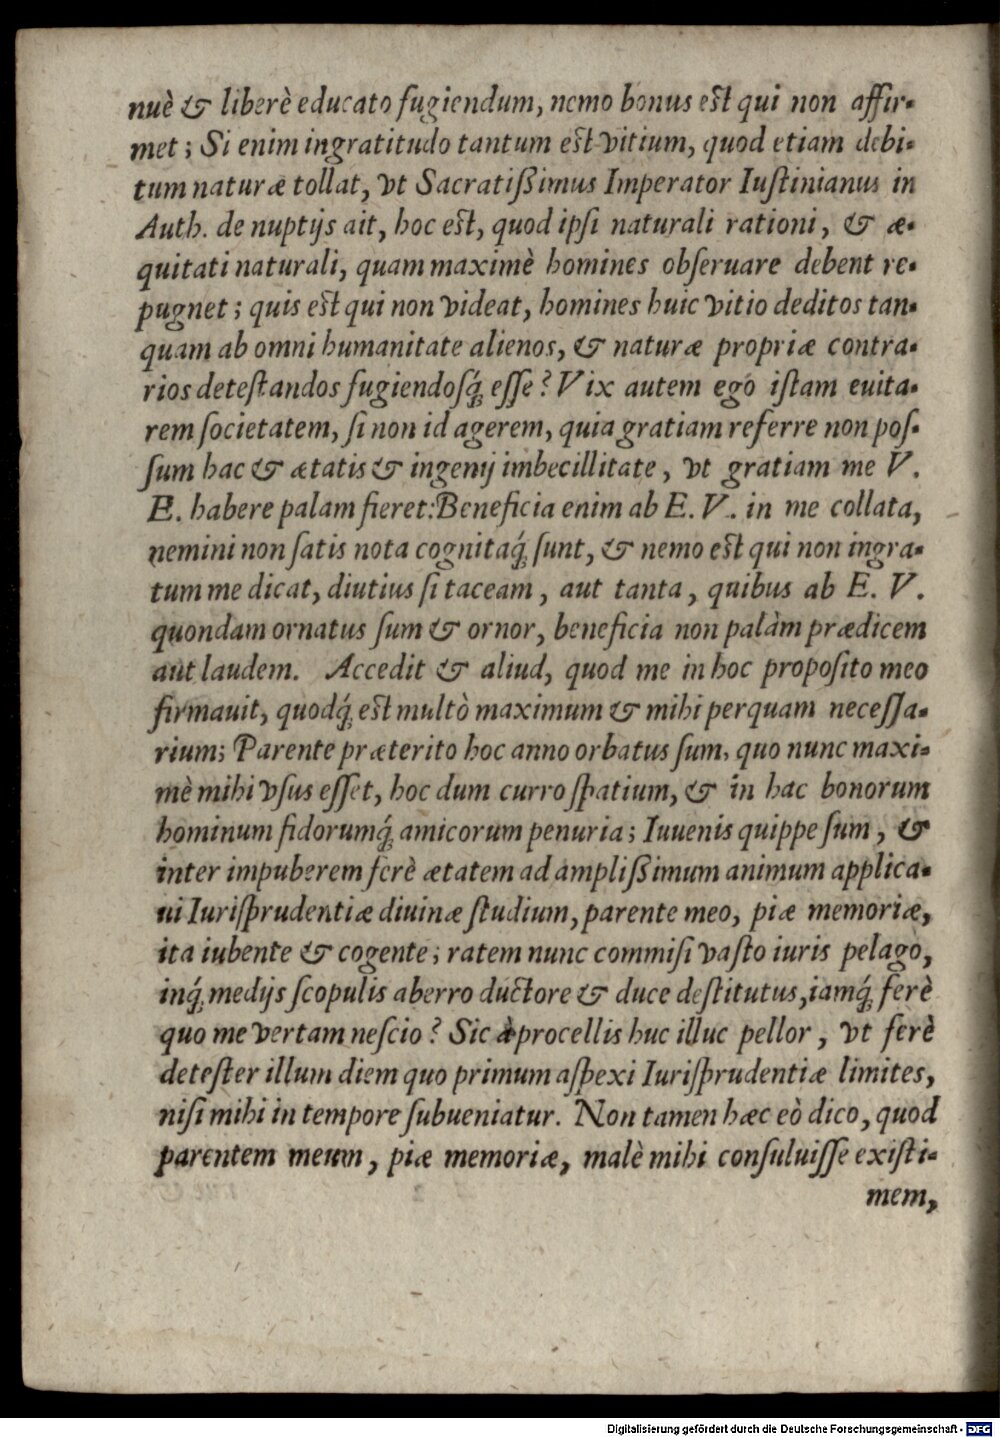 nuè & liberè educato fugiendum, nemo bonus est qui non affir-
met; Si enim ingratitudo tantum est vitium, quod etiam debi-
tum naturæ tollat, vt Sacratißimus Imperator Iustinianus in
Auth. de nuptijs ait, hoc est, quod ipsi naturali rationi, & æ-
quitati naturali, quam maximè homines obseruare debent re-
pugnet; quis est qui non videat, homines huic vitio deditos tan-
quam ab omni humanitate alienos, & naturæ propriæ contra-
rios detestandos fugiendosq́; esse? Vix autem ego istam euita-
rem societatem, si non id agerem, quia gratiam referre non pos-
sum hac & ætatis & ingenij imbecillitate, vt gratiam me V.
E. habere palam fieret: Beneficia enim ab E. V. in me collata,
nemini non satis nota cognitaq́; sunt, & nemo est qui non ingra-
tum me dicat, diutius si taceam, aut tanta, quibus ab E. V.
quondam ornatus sum & ornor, beneficia non palàm prædicem
aut laudem. Accedit & aliud, quod me in hoc proposito meo
firmauit, quodq́; est multò maximum & mihi perquam necessa-
rium; Parente præterito hoc anno orbatus sum, quo nunc maxi-
mè mihi vsus esset, hoc dum curro spatium, & in hac bonorum
hominum fidorumq́; amicorum penuria; Iuuenis quippe sum, &
inter impuberem ferè ætatem ad amplißimum animum applica-
ui Iurisprudentiæ diuinæ studium, parente meo, piæ memoriæ,
ita iubente & cogente; ratem nunc commisi vasto iuris pelago,
inq́; medijs scopulis aberro ductore & duce destitutus, iamq́; ferè
quo me vertam nescio? Sic à procellis huc illuc pellor, vt ferè
detester illum diem quo primum aspexi Iurisprudentiæ limites,
nisi mihi in tempore subueniatur. Non tamen hæc eò dico, quod
parentem meum, piæ memoriæ, malè mihi consuluisse existi-
mem,
Digitalisierung gefördert durch die Deutsche Forschungsgemeinschaft - DFG